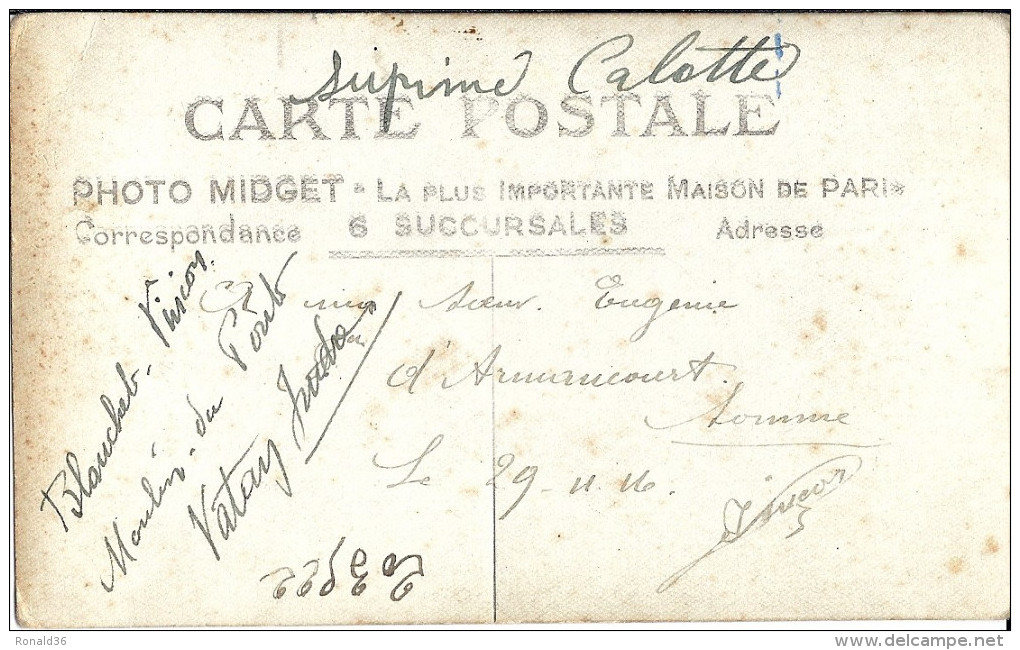 Suprimé Calotte
CARTE POSTALE
PHOTO MIDGET - LA PLUS IMPORTANTE MAISON DE PARIS
Correspondance 6 SUCCURSALES Adresse
A ma sœur Eugénie
d'Armancourt.
Somme
Le 29-11-16.
Blanchet. 
Moulin du Pont
Vatan Indre
Ronald36
www.delcampe.net